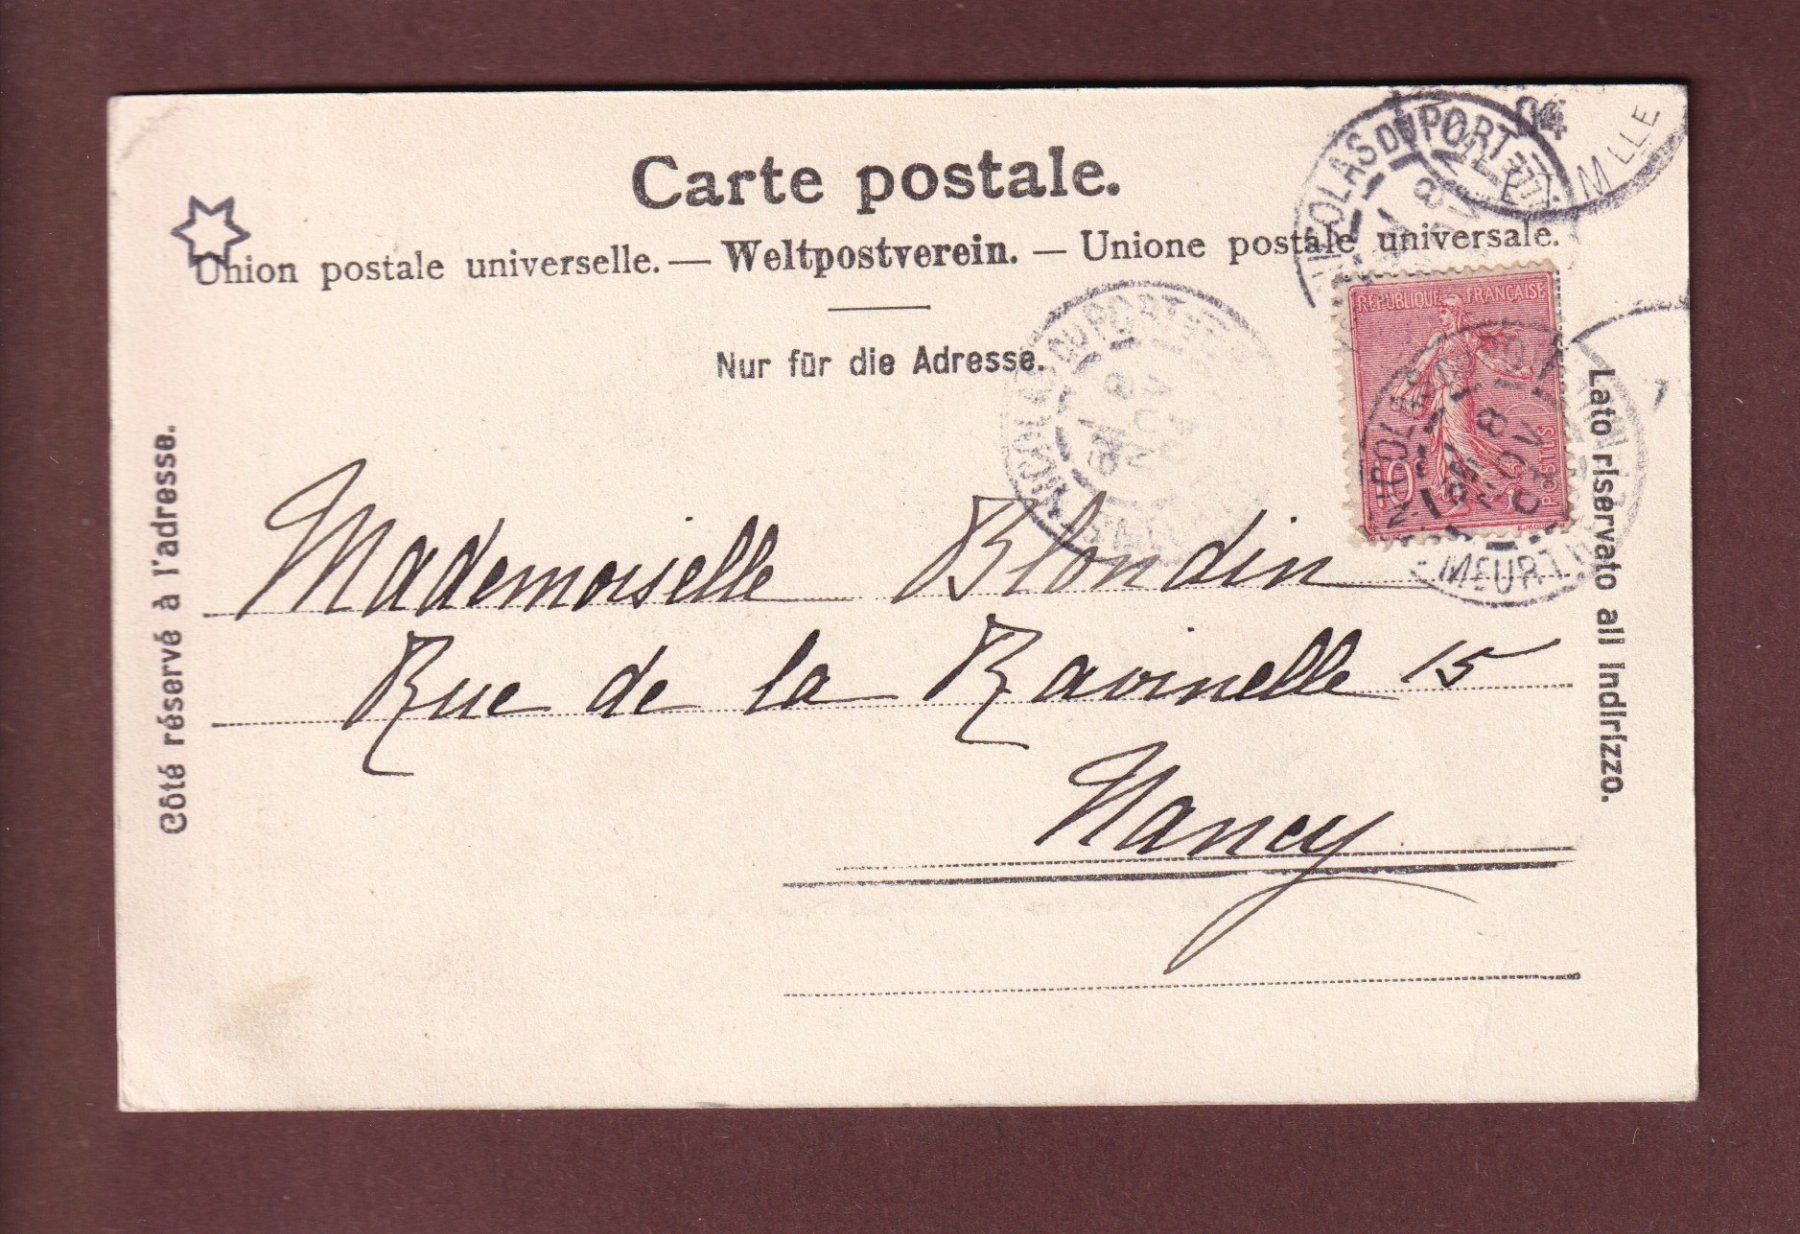 Carte postale.
Union postale universelle. — Weltpostverein. — Unione postale universale.
Nur für die Adresse.
Côté réservé à l'adresse.
Lato riservato all indirizzo.
REPUBLIQUE FRANÇAISE
10
POSTES
NICOLAS DU PORT
04
MLLE
NICOLAS DU PORT
8
NOV
MEURTHE
Mademoiselle Blondin
Rue de la Ravinelle 15
Nancy